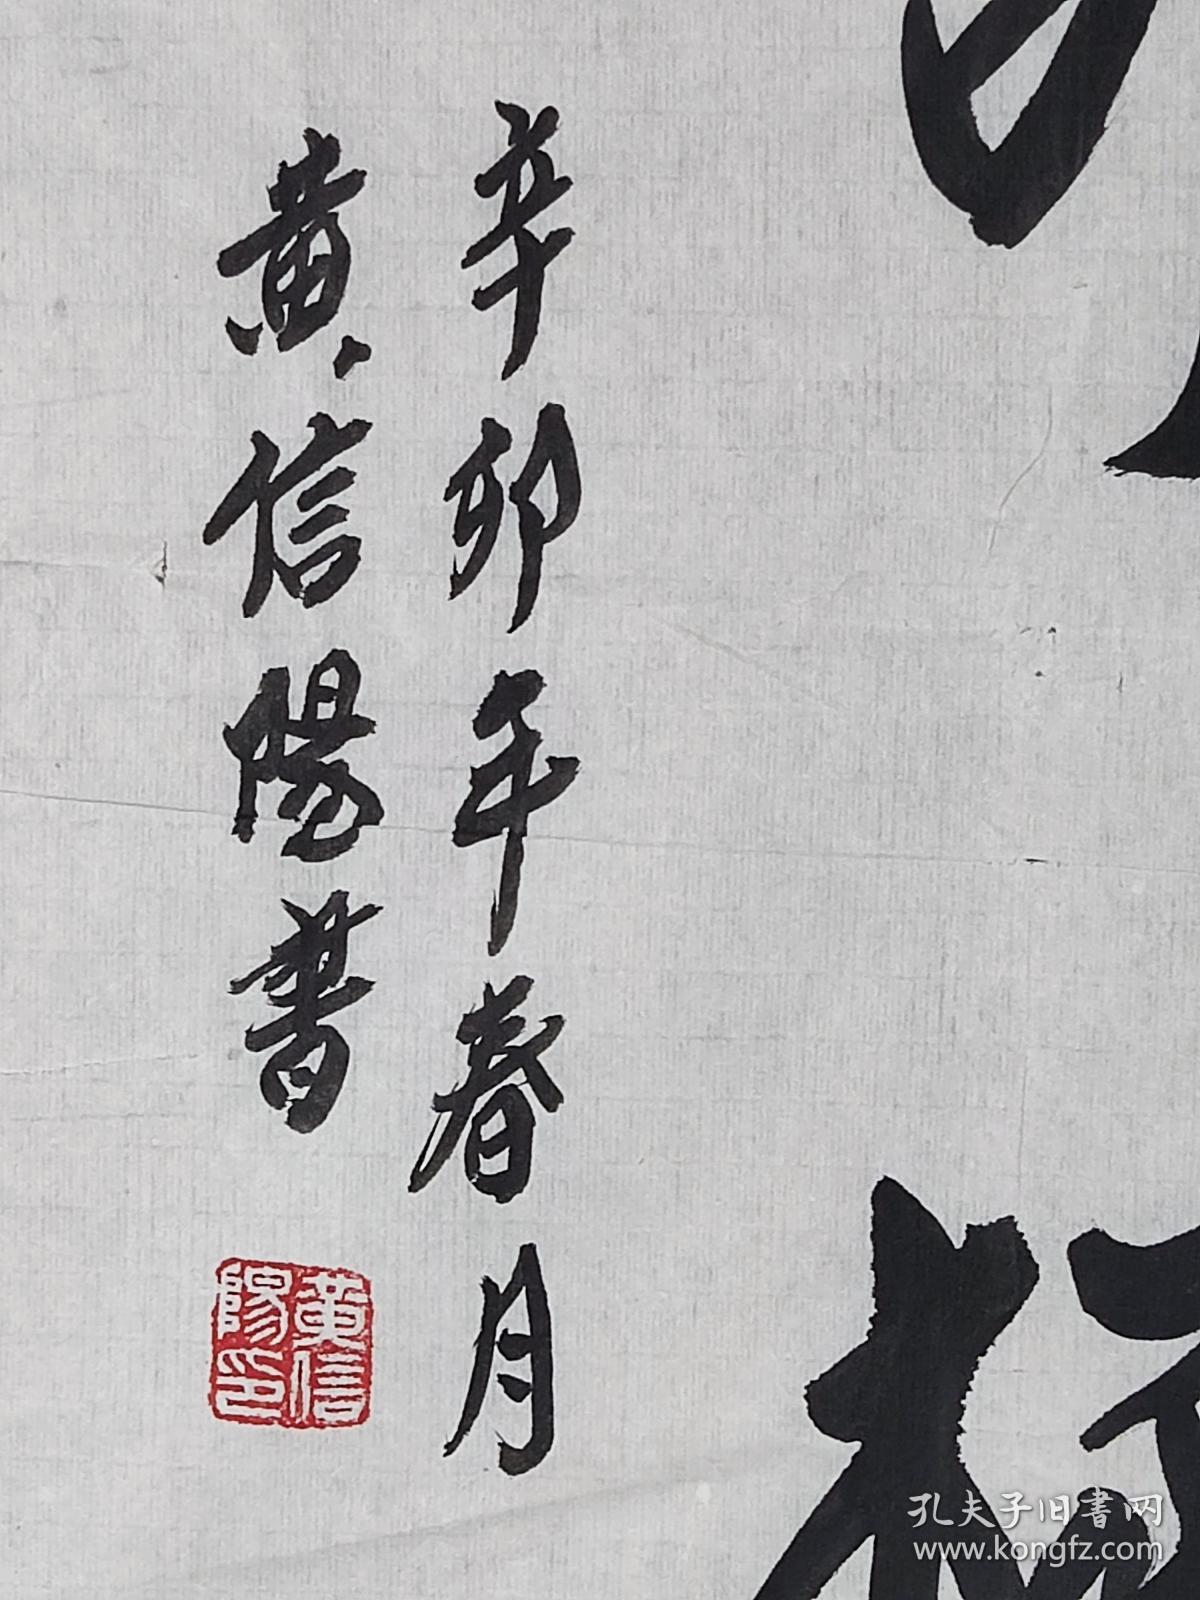 辛卯年春月
黄信陽書
黄信
陽印
孔夫子旧書网
www.kongfz.com